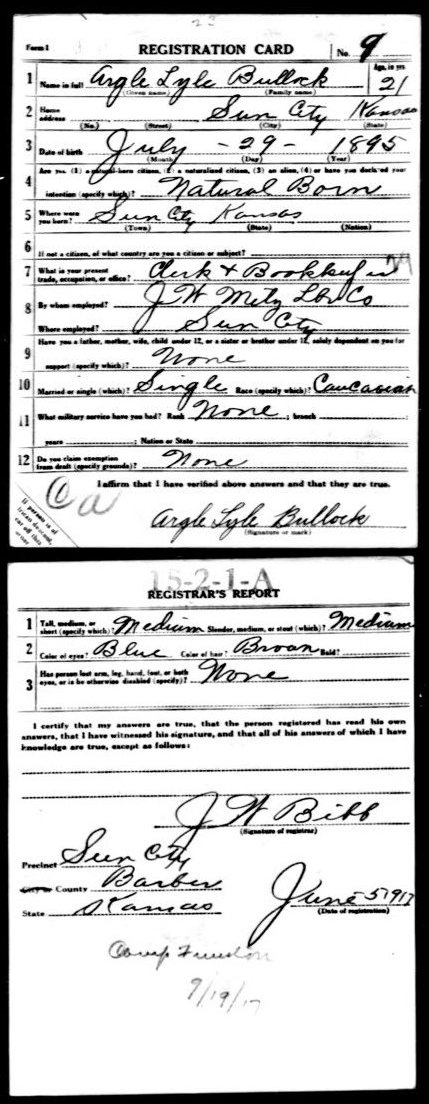 23
Form 1 REGISTRATION CARD No. 9
1 Name in full Argle Lyle Bullock Age, in yrs. 21
(Given name) (Family name)
2 Home address Sun City Kansas
(No.) (Street) (City) (State)
3 Date of birth July - 29 - 1895
(Month) (Day) (Year)
4 Are you (1) a natural-born citizen, (2) a naturalized citizen, (3) an alien, (4) or have you declared your
intention (specify which)? Natural Born
5 Where were you born? Sun City Kansas
(Town) (State) (Nation)
6 If not a citizen, of what country are you a citizen or subject?
7 What is your present trade, occupation, or office? Clerk + Bookkeeper
8 By whom employed? J W Metz Lbr Co
Where employed? Sun City
9 Have you a father, mother, wife, child under 12, or a sister or brother under 12, solely dependent on you for
support (specify which)? None
10 Married or single (which)? Single Race (specify which)? Caucasian
11 What military service have you had? Rank None ; branch
years ; Nation or State
12 Do you claim exemption from draft (specify grounds)? None
I affirm that I have verified above answers and that they are true.
Argle Lyle Bullock
(Signature or mark)
If person is of
African descent,
cut off this
corner
15-2-1-A
REGISTRAR'S REPORT
1 Tall, medium, or short (specify which)? Medium Slender, medium, or stout (which)? Medium
2 Color of eyes? Blue Color of hair? Brown Bald?
3 Has person lost arm, leg, hand, foot, or both eyes, or is he otherwise disabled (specify)? None
I certify that my answers are true, that the person registered has read his own
answers, that I have witnessed his signature, and that all of his answers of which I have
knowledge are true, except as follows:
J W Bibb
(Signature of registrar)
Precinct Sun City
City or County Barber
State Kansas
June 5 1917
(Date of registration)
Camp Funston
9/19/17